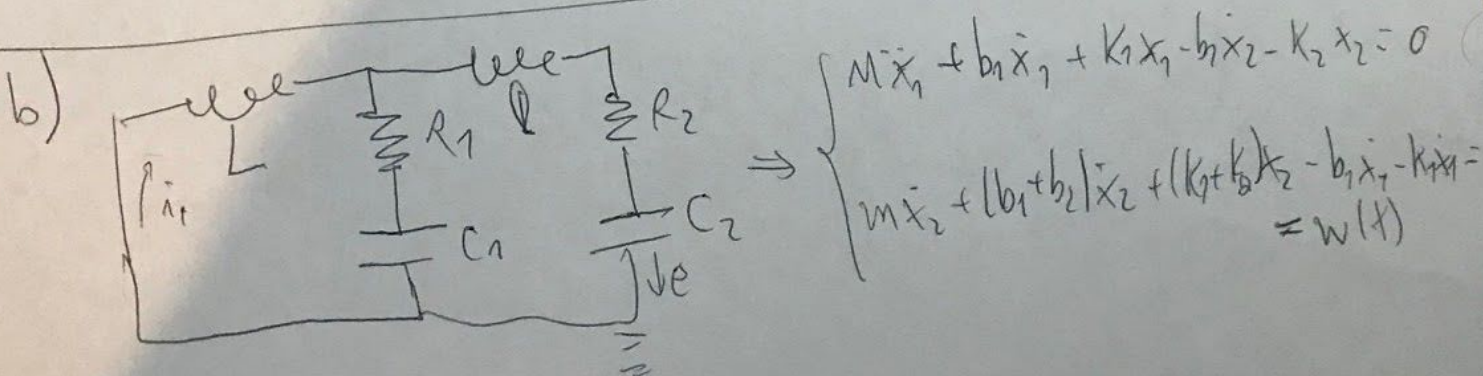 b)
L
i₁
R₁
C₁
l
R₂
C₂
↓e
⇒
Mẍ₁ + b₁ẋ₁ + K₁x₁ - b₁ẋ₂ - K₂x₂ = 0
mẍ₂ + (b₁+b₂)ẋ₂ + (K₁+K₂)x₂ - b₁ẋ₁ - K₁x₁ =
= w(t)